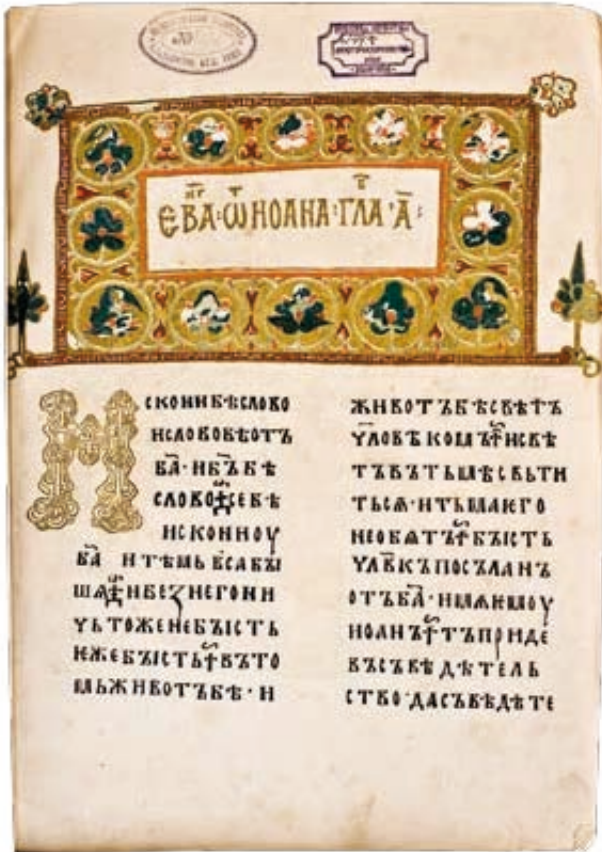 ЕВА·ѾИОАНА·ГЛА·А҃:
ИСКОНИБѢСЛОВО
ИСЛОВОБѢОТЪ
БА҃·ИБЪ҃БѢ
СЛОВО СЕБѢ
ИСКОНИОУ
БА҃ ИТѢМЬВСАБЫ
ШѦ ИБЕЗНЕГОНИ
ЧЬТОЖЕНЕБЫСТЬ
ЕЖЕБЫСТЬ ВЪТО
МЬЖИВОТЪБѢ·И
ЖИВОТЪБѢСВѢТЪ
ЧЛОВѢКОМЪ ИСВѢ
ТЪВЪТЬМѢСВЬТИ
ТЬСѦ·ИТЬМАЮГО
НЕОБѦТЪ БЫСТЬ
ЧЛВ҃КЪПОСЪЛАНЪ
ОТЪБА҃·ИМѦЮМОУ
ИОАНЪ ТЪПРИДЕ
ВЪСЪВѢДѢТЕЛЬ
СТВО·ДАСЪВѢДѢТЕ